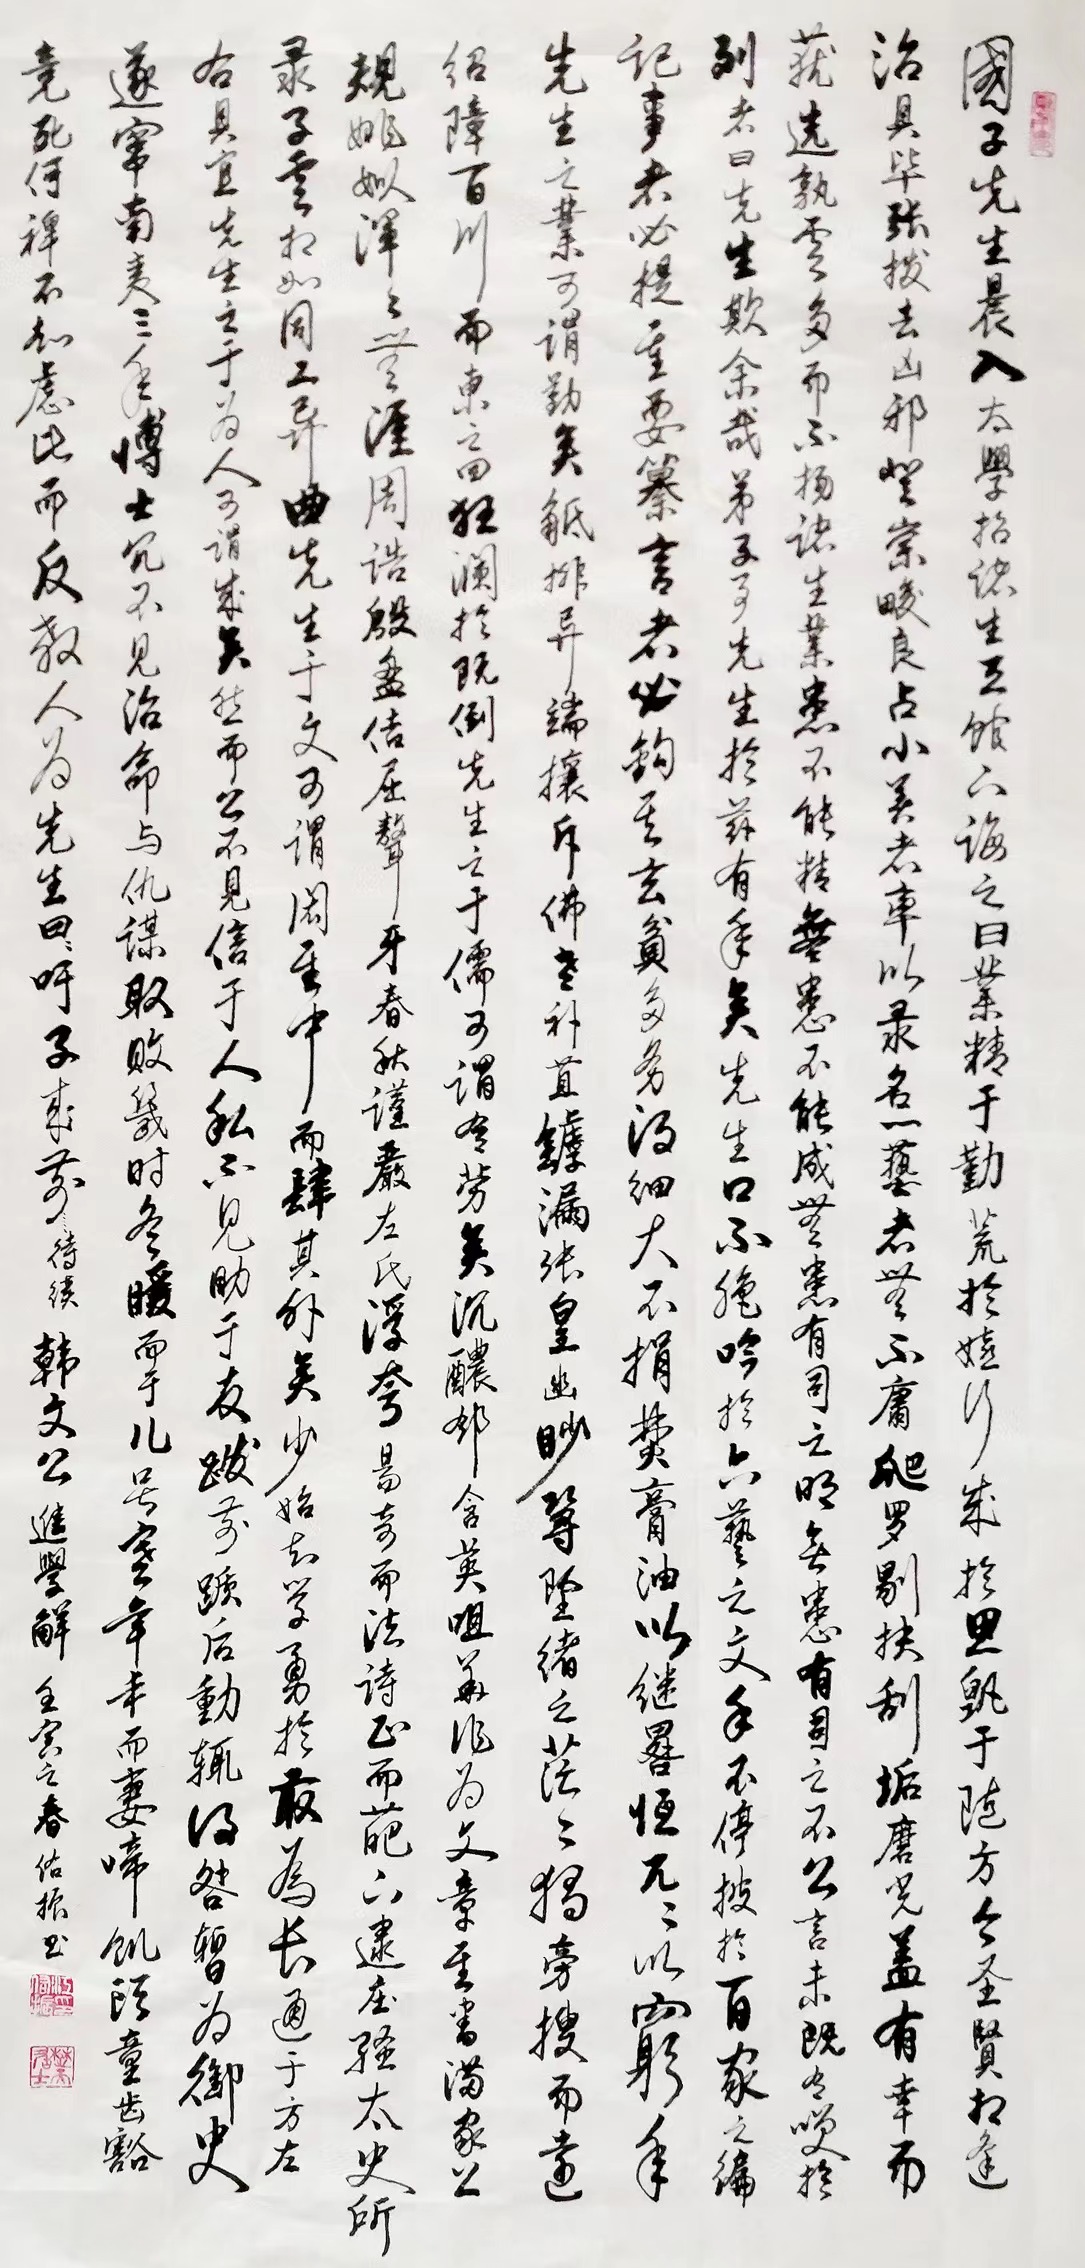 國子先生晨入太學招诸生立馆下誨之曰業精于勤荒於嬉行成於思毁于随方今圣賢相逢
治具毕张拔去凶邪登崇畯良占小美者率以录名一藝者無不庸爬罗剔抉刮垢磨光盖有幸而
获选孰雲多而不扬诸生業患不能精無患不能成無患有司之明無患有司之不公言未既有嘆於
列者曰先生欺余哉弟子事先生於兹有年矣先生口不绝吟於六藝之文手不停披於百家之编
记事者必提其要纂言者必钩其玄貪多务得细大不捐焚膏油以继晷恒兀兀以窮年
先生之業可谓勤矣觝排异端攘斥佛老补苴罅漏张皇幽眇尋坠绪之茫茫獨旁搜而遠
绍障百川而東之回狂澜於既倒先生之于儒可谓有劳矣沉醲郁含英咀華作为文章其書满家上
规姚姒渾渾無涯周诰殷盤佶屈聱牙春秋謹嚴左氏浮夸易奇而法诗正而葩下逮庄骚太史所
录子雲相如同工异曲先生于文可谓闳其中而肆其外矣少始知学勇於敢為长通于方左
右具宜先生之于为人可谓成矣然而公不見信于人私不见助于友跋前踬后動辄得咎暫为御史
遂窜南夷三年博士冗不見治命与仇谋取败幾时冬暖而于儿号寒年丰而妻啼飢頭童齿豁
竟死何裨不知慮此而反教人为先生曰吁子来前待续韩文公進學解壬寅之春佑振书